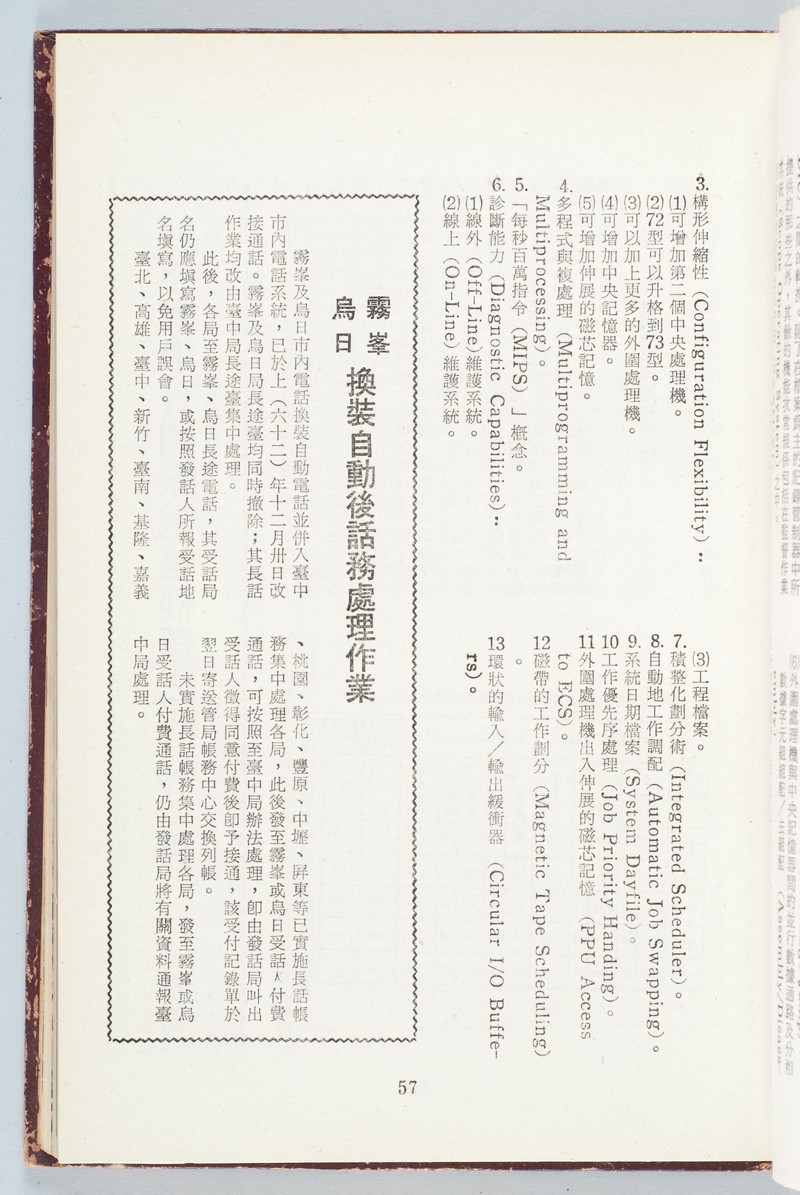 3.構形伸縮性（Configuration Flexibility）：
(1)可增加第二個中央處理機。
(2)72型可以升格到73型。
(3)可以加上更多的外圍處理機。
(4)可增加中央記憶器。
(5)可增加伸展的磁芯記憶。
4.多程式與複處理（Multiprogramming and
Multiprocessing）。
5.「每秒百萬指令（MIPS）」概念。
6.診斷能力（Diagnostic Capabilities）：
(1)線外（Off-Line）維護系統。
(2)線上（On-Line）維護系統。
(3)工程檔案。
7.積整化劃分術（Integrated Scheduler）。
8.自動地工作調配（Automatic Job Swapping）。
9.系統日期檔案（System Dayfile）。
10工作優先序處理（Job Priority Handing）。
11外圍處理機出入伸展的磁芯記憶（PPU Access
to ECS）。
12磁帶的工作劃分（Magnetic Tape Scheduling）
。
13環狀的輸入／輸出緩衝器（Circular I/O Buffe-
rs）。
霧峯
烏日
換裝自動後話務處理作業
霧峯及烏日市內電話換裝自動電話並併入臺中
市內電話系統，已於上（六十二）年十二月卅日改
接通話。霧峯及烏日局長途臺均同時撤除；其長話
作業均改由臺中局長途臺集中處理。
此後，各局至霧峯、烏日長途電話，其受話局
名仍應塡寫霧峯、烏日，或按照發話人所報受話地
名塡寫，以免用戶誤會。
臺北、高雄、臺中、新竹、臺南、基隆、嘉義
、桃園、彰化、豐原、中壢、屏東等已實施長話帳
務集中處理各局，此後發至霧峯或烏日受話人付費
通話，可按照至臺中局辦法處理，卽由發話局叫出
受話人徵得同意付費後卽予接通，該受付記錄單於
翌日寄送管局帳務中心交換列帳。
未實施長話帳務集中處理各局，發至霧峯或烏
日受話人付費通話，仍由發話局將有關資料通報臺
中局處理。
57